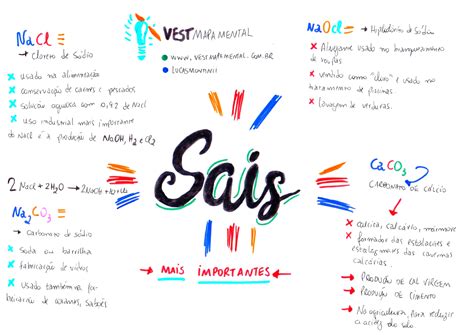 NaCl =
→ Cloreto de Sódio
x usado na alimentação
x conservação de carnes e pescados
x solução aquosa com 0,92 NaCl
x uso industrial mais importante
do NaCl é a produção de NaOH, H2 e Cl2
2 NaCl + 2H2O → 2NaOH + H2 + Cl2
Na2CO3 =
→ Carbonato de sódio
x Soda ou barrilha
x fabricação de vidros
x Usado também na fa-
bricação de sabões
VEST MAPA MENTAL
www.vestmapamental.com.br
Sais
→ MAIS IMPORTANTES ←
NaOCl = → Hipoclorito de Sódio
x Alvejante usado no branqueamento
de roupas
x vendido como "cloro" é usado no
tratamento de piscinas.
x lavagem de verduras.
CaCO3
CARBONATO DE CÁLCIO
x calcita, calcário, mármore
x formador das estalactites e
estalagmites das cavernas
calcárias
→ PRODUÇÃO DE CAL VIRGEM
→ PRODUÇÃO DE CIMENTO
→ Na agricultura, para reduzir
a acidez do solo